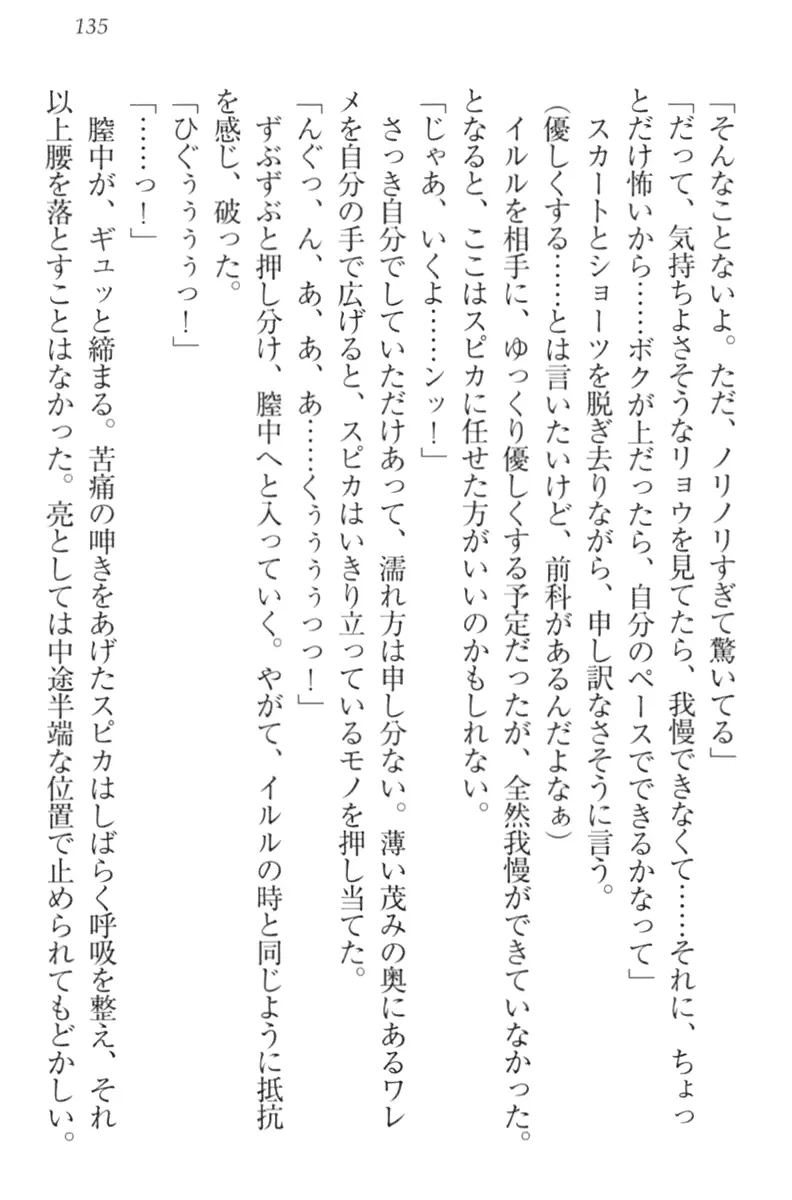 135
「そんなことないよ。ただ、ノリノリすぎて驚いてる」
「だって、気持ちよさそうなリョウを見てたら、我慢できなくて……それに、ちょっ
とだけ怖いから……ボクが上だったら、自分のペースでできるかなって」
スカートとショーツを脱ぎ去りながら、申し訳なさそうに言う。
(優しくする……とは言いたいけど、前科があるんだよなぁ)
イルルを相手に、ゆっくり優しくする予定だったが、全然我慢ができていなかった。
となると、ここはスピカに任せた方がいいのかもしれない。
「じゃあ、いくよ……ンッ！」
さっき自分でしていただけあって、濡れ方は申し分ない。薄い茂みの奥にあるワレ
メを自分の手で広げると、スピカはいきり立っているモノを押し当てた。
「んぐっ、ん、あ、あ、あ……くぅぅぅぅっっ！」
ずぶずぶと押し分け、膣中へと入っていく。やがて、イルルの時と同じように抵抗
を感じ、破った。
「ひぐぅぅぅぅっ！」
「……っ！」
膣中が、ギュッと締まる。苦痛の呻きをあげたスピカはしばらく呼吸を整え、それ
以上腰を落とすことはなかった。亮としては中途半端な位置で止められてもどかしい。